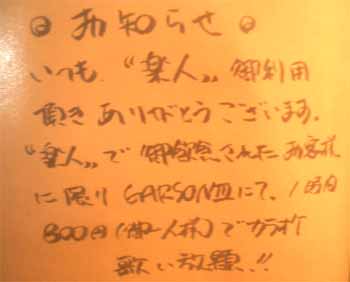 ◎ お知らせ ◎
いつも、"楽人" 御利用
頂きありがとうございます。
"楽人"で 御飲食されたお客様
に限り GARSONⅢにて、1時間
800円(御一人様)でカラオケ
歌い放題!!